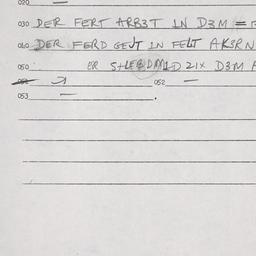 020
030 DER FERT ARB3T IN D3M =
040 DER FERD GEUT IN FELT AK3RN
050 ER D 21X D3M
052
053